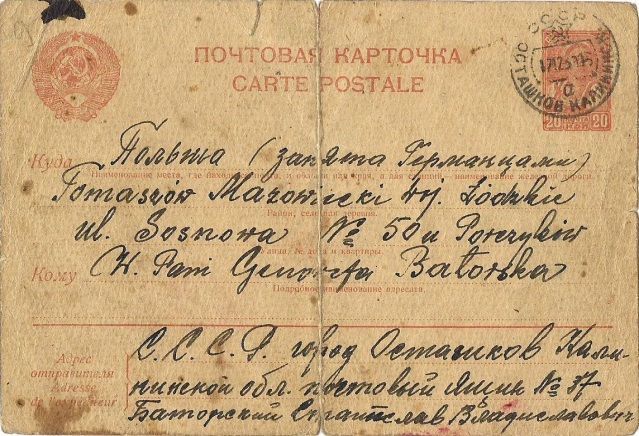 ПОЧТОВАЯ КАРТОЧКА
CARTE POSTALE
СССР
ОСТАШКОВ КАЛИНИН
20 20
Куда Польша (занята Германцами)
Наименование места, где находится почта, и области или края, а для станций — наименование железной дороги.
Tomaszów Mazowiecki wj. Łódzkie
Район, село или деревня.
ul. Sosnowa № 50 u Porczyków
Улица, № дома и квартиры.
Кому W. Pani Genowefa Batorska
Подробное наименование адресата.
Адрес отправителя
Adresse de l'expéditeur
С.С.С.Р. город Осташков Кали-
нинской обл. почтовый Ящик № 37
Баторский Станислав Владиславович